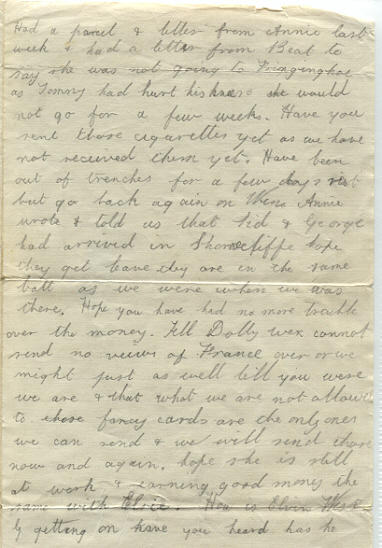 Had a parcel & letter from Annie last
week & had a letter from Beat to
say she was not going to Fringinghoe
as Tommy had hurt his knee so she would
not go for a few weeks. Have you
sent those cigarettes yet as we have
not received them yet. Have been
out of trenches for a few days rest
but go back again on Annie
wrote & told us that Sid & George
had arrived in Shorncliffe hope
they get leave they are in the same
batt as we were when we was
there. Hope you have had no more trouble
over the money. Tell Dolly wex cannot
send no views of France over or we
might just as well tell you were
we are & that what we are not allowed
to these fancy cards are the only ones
we can send & we will send those
now and again. hope she is still
at work & earning good money the
same with Elsie. How is Elvin
ly getting on have you heard has he